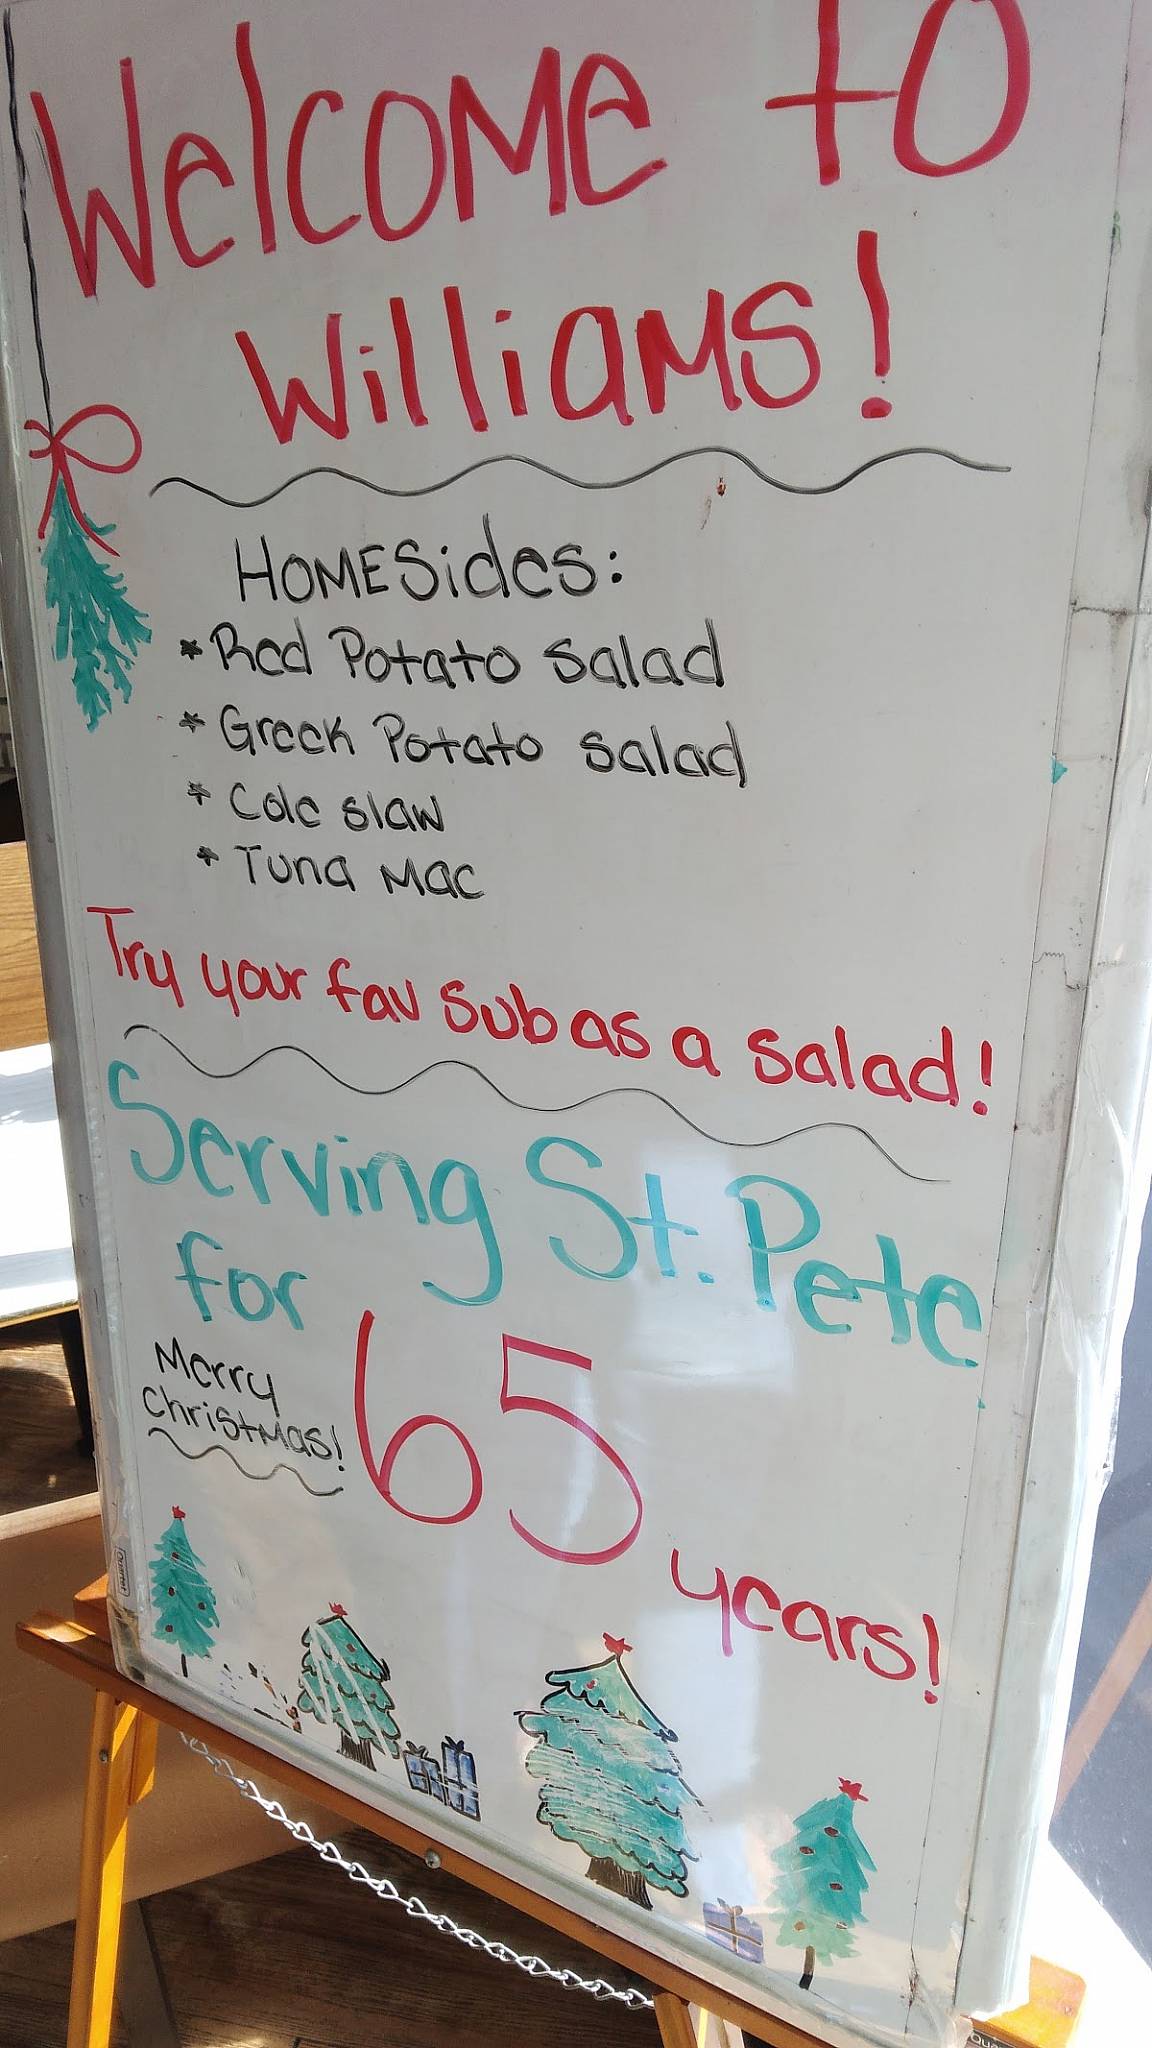 Welcome to
Williams!
HOMESides:
* Red Potato Salad
* Greek Potato Salad
* Cole slaw
* Tuna Mac
Try your fav sub as a salad!
Serving St. Pete
for 65 years!
Merry
Christmas!
Quartet